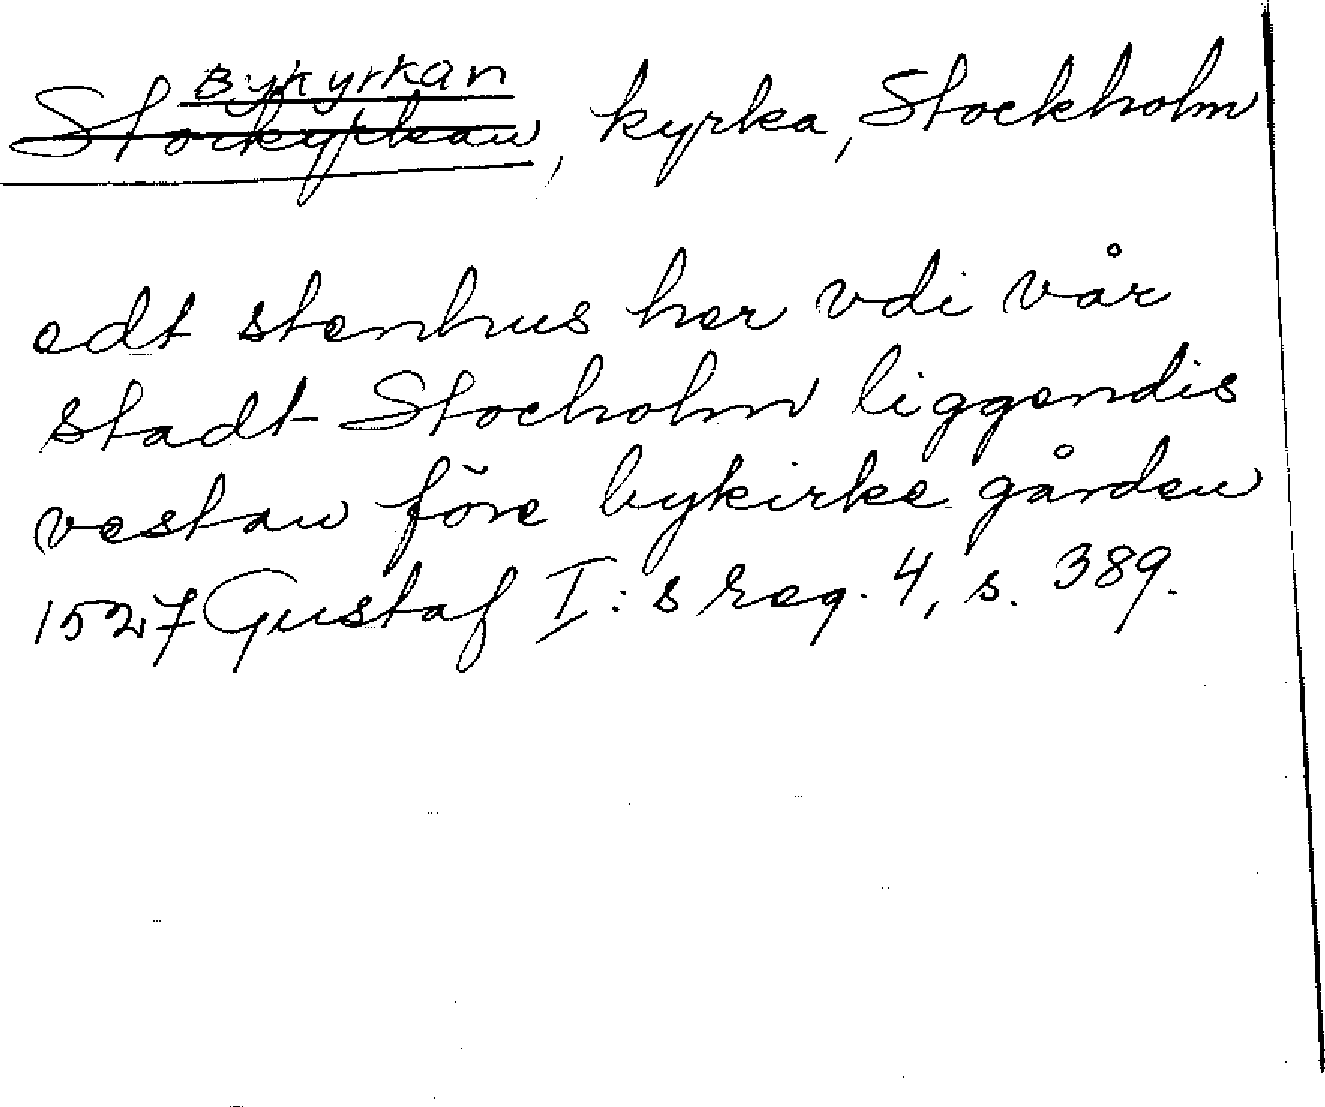 Bykyrkan
Stockyrkan, kyrka, Stockholm
edt stenhus her vdi vår
stadt Stocholm liggendis
vestan före bykirke gården
1527 Gustaf I:s reg. 4, s. 389.